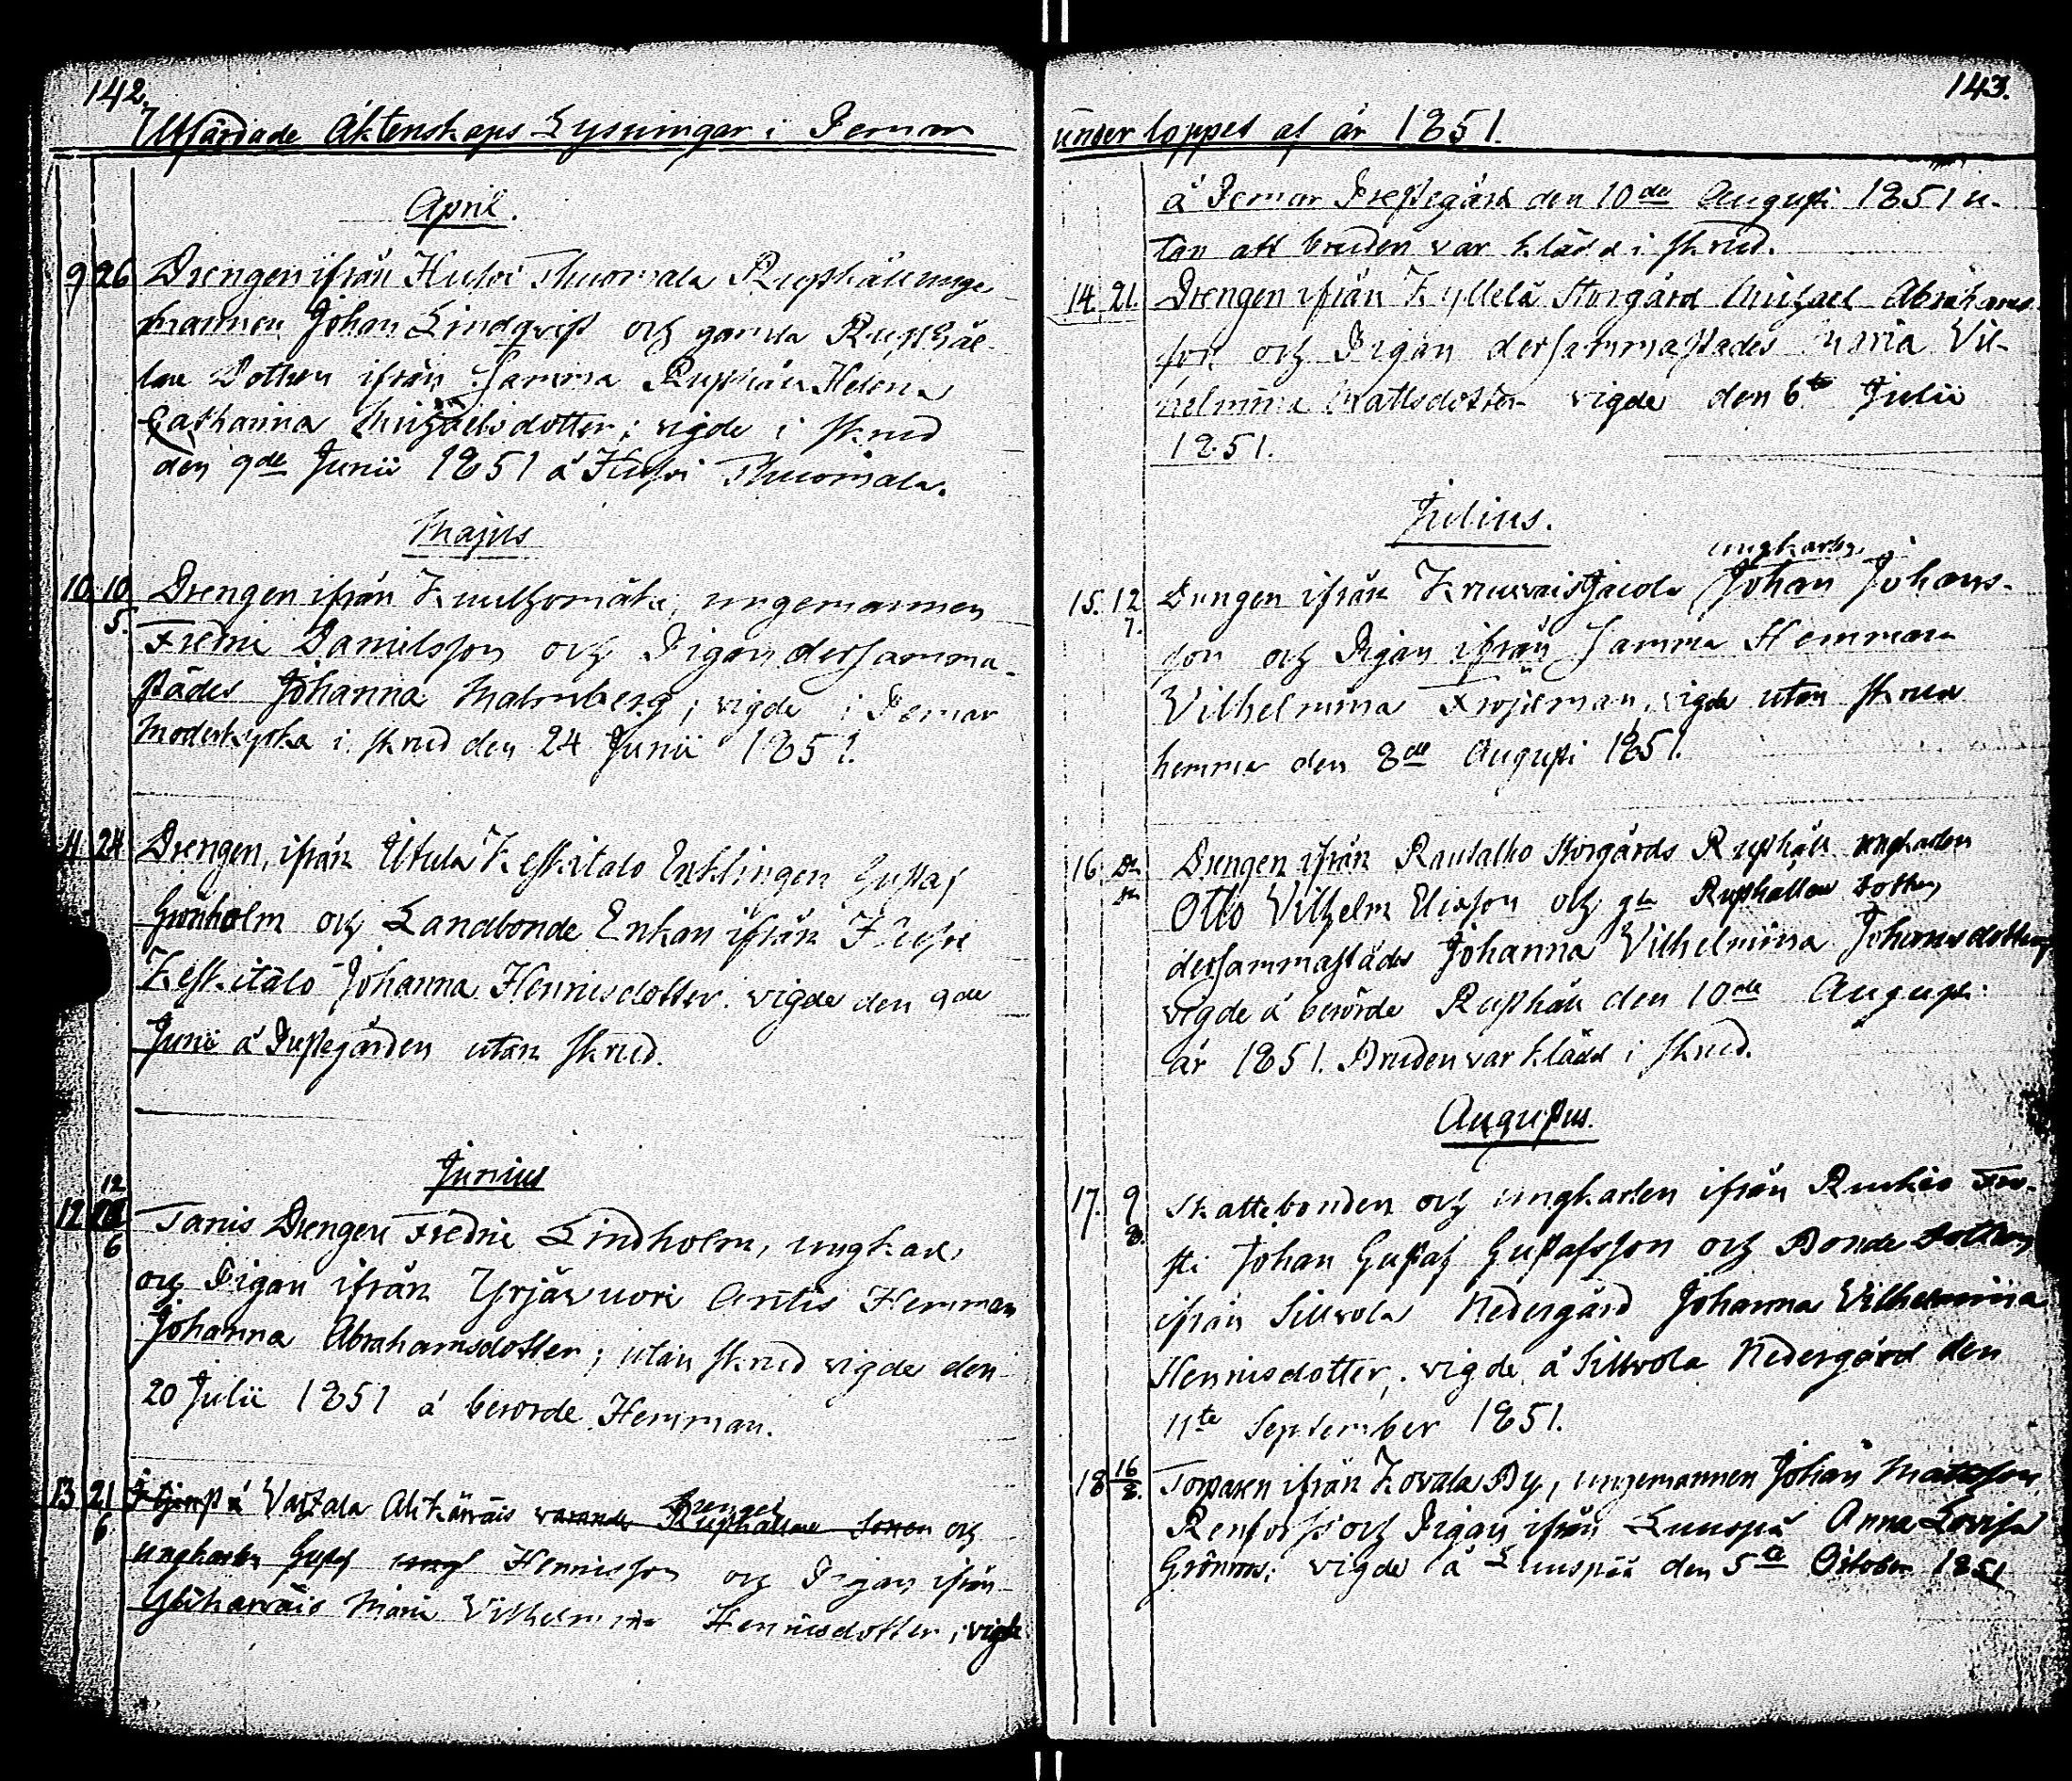 142.
Utfärdade Äktenskaps Lysningar i Pemar
April.
9 26 Drengen ifrån Hulvi Thuomala Rusthåll unge
mannen Johan Lindqvist och gamla Rusthål-
lare Dottren ifrån samma Rusthåll Helena
Catharina Michaelsdotter; vigde i skrud
den 9de Junii 1851 å Hulvi Thuomala.
Majus
10. 10/5. Drengen ifrån ungemannen
Fredric Danielsson och Pigan dersamma-
städes Johanna Malmberg; vigde i Pemar
Moderkyrka i skrud den 24 Junii 1851.
11. 24 Drengen, ifrån Utula Keskitalo Enklingen Gustaf
Grönholm och Landbonde Enkan ifrån
Keskitalo Johanna Henricsdotter. vigde den 9de
Junii å Prestegården utan skrud.
Junius
12 12/6 Tanis Drengen Fredric Lindholm, ungkarl
och Pigan ifrån Yrjäsvuori Anttis Hemman
Johanna Abrahamsdotter; utan skrud vigde den
20 Julii 1851 å berörde Hemman.
13 21/6 å Vaskala Alikärväis varande Rusthållare Sonen och
Drengen
ungkarlen Gustaf Henricsson och Pigan ifrån
Maria Vilhelmina Henricsdotter; vigde
143.
under loppet af år 1851.
å Pemar Prestegård den 10de Augusti 1851 u-
tan att bruden var klädd i skrud.
14. 21. Drengen ifrån Kyllelä Storgård Michael Abrahams-
son och Pigan dersammastädes Maria Vil-
helmina Mattsdotter vigde den 6te Julii
1851.
Julius.
ungkarlen
15. 12/7. Drengen ifrån Johan Johans-
son och Pigan ifrån samma Hemman
Vilhelmina Fröjdman, vigde utan skrud
hemma den 8de Augusti 1851.
16. Drengen ifrån Rautalho Storgårds Rusthåll ungkarlen
Otto Vilhelm Elisson och gla Rusthållare Dottren
dersammastädes Johanna Vilhelmina Johansdotter
vigde å berörde Rusthåll den 10de Augusti
år 1851. Bruden var klädd i skrud.
Augustus.
17. 9/8. Skattebonden och ungkarlen ifrån Ruskio
Johan Gustaf Gustafsson och Bonde Dottren
ifrån Sillvola Nedergård Johanna Vilhelmina
Henricsdotter, vigde å Sillvola Nedergård den
11te September 1851.
18 16/8. Torparen ifrån Kovala By, ungemannen Johan Mattsson
Renfors och Pigan ifrån Luuspää Anna Lovisa
Grönroos; vigde å Luuspää den 5te October 1851